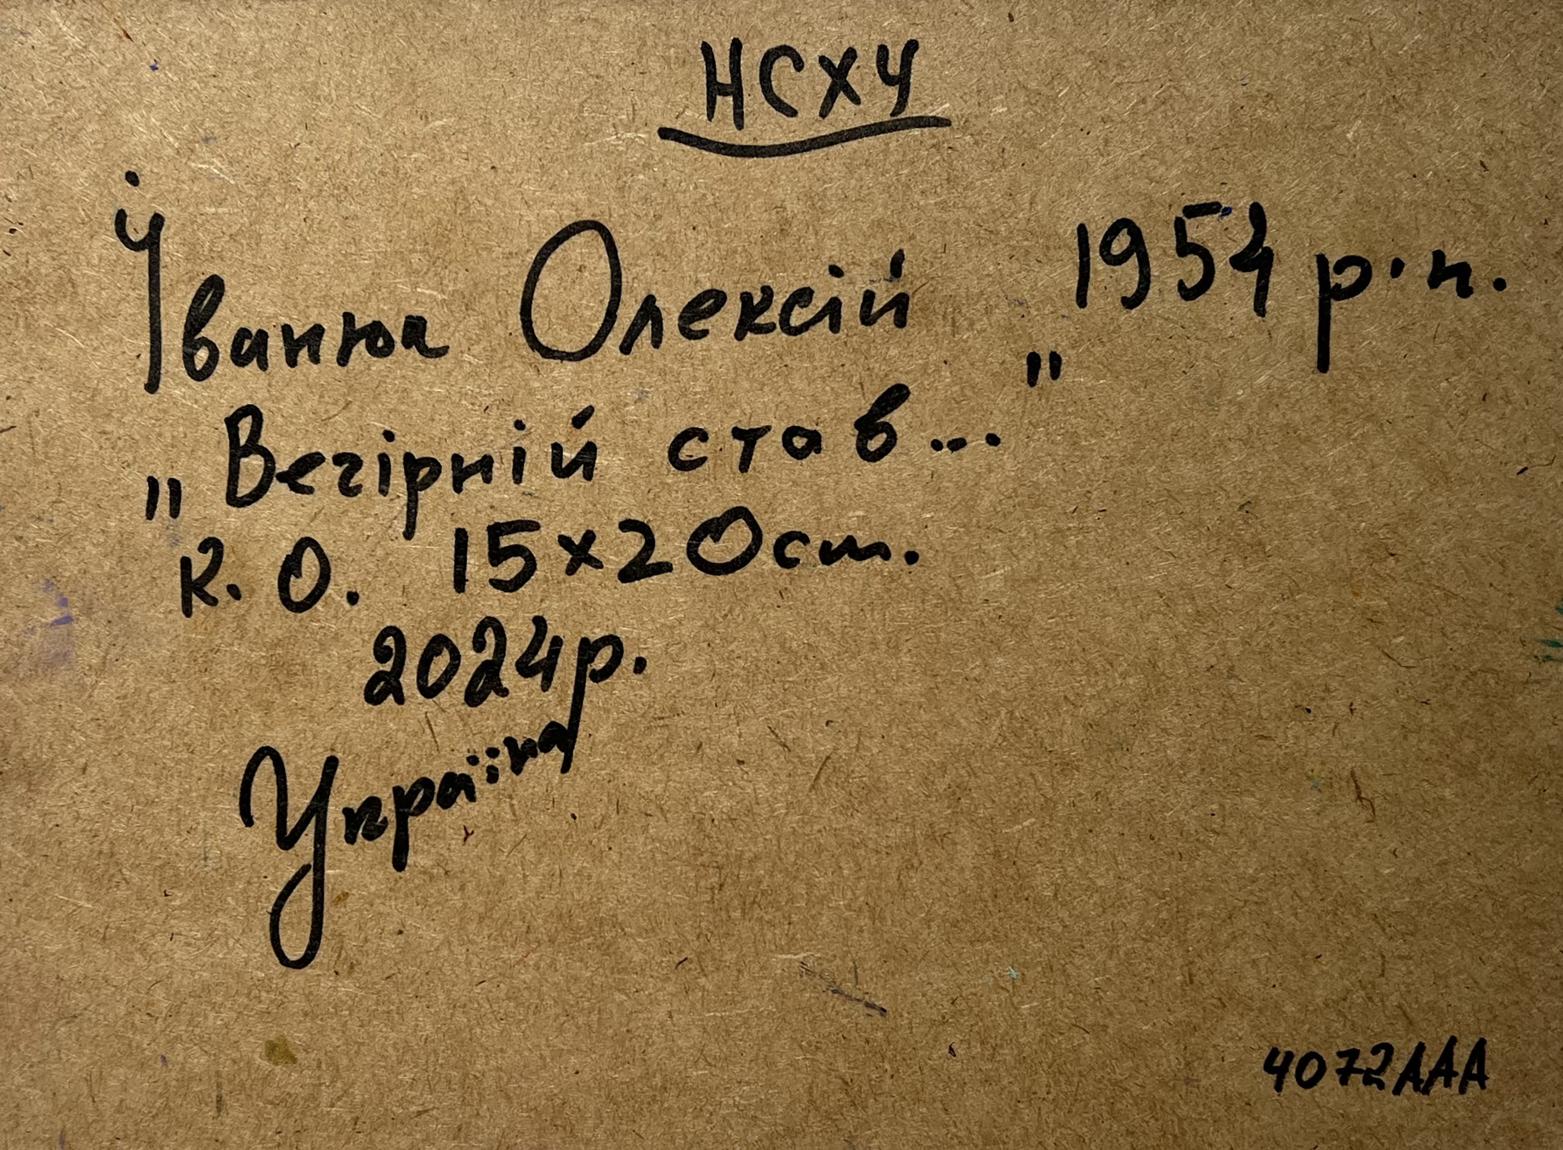 НСХУ
Іванюк Олексій 1954 р.н.
"Вечірній став..."
к. О. 15x20 см.
2024р.
Україна
4072AAA